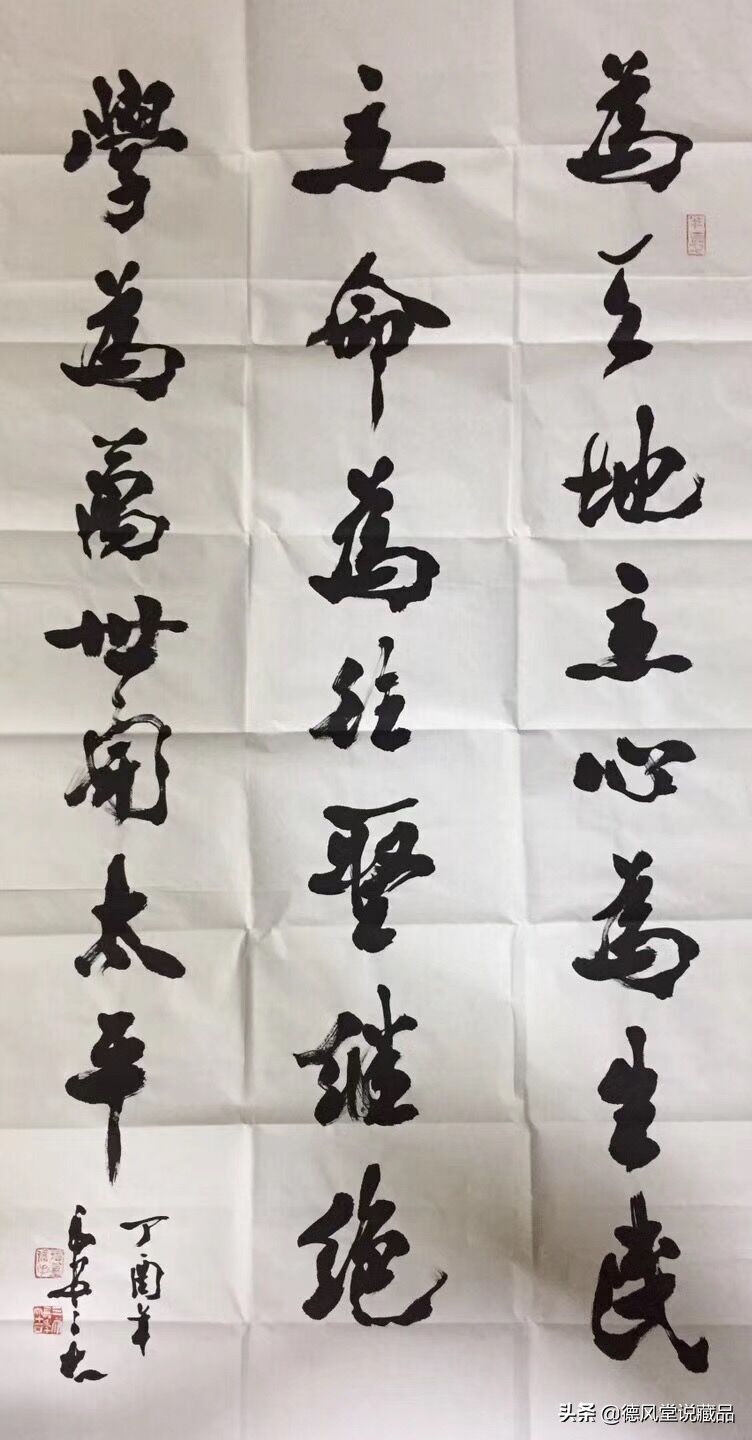 為天地立心為生民
立命為往聖继绝
學為萬世開太平
丁酉年
头条 @德风堂说藏品